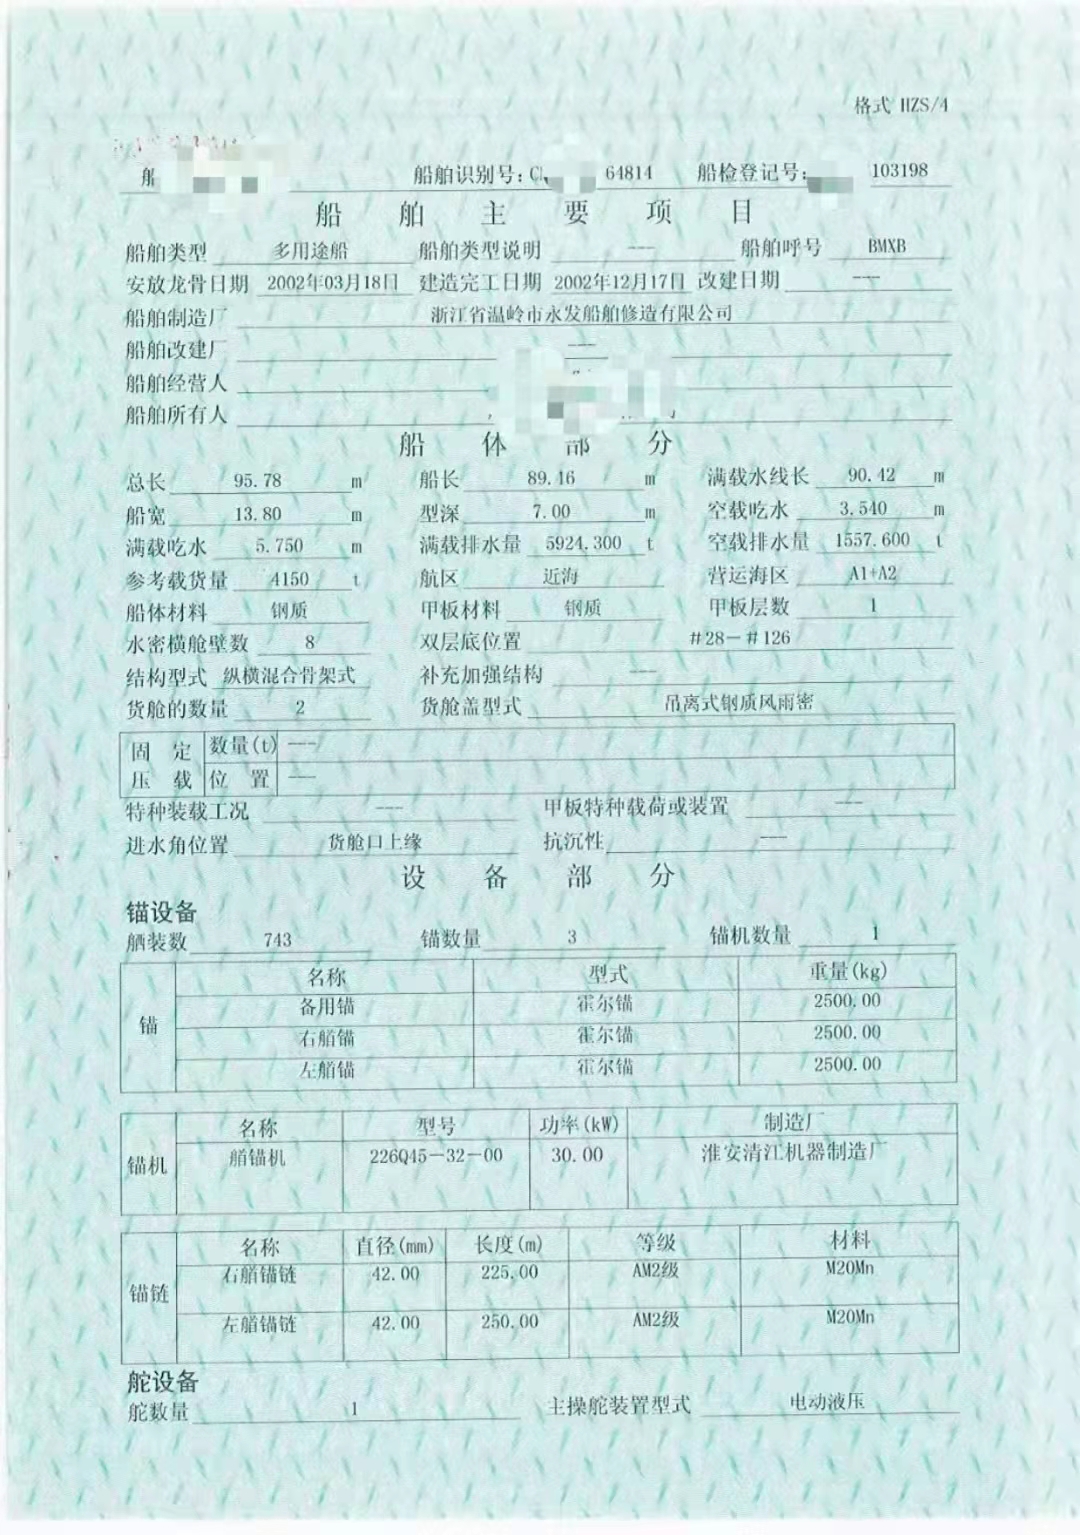 格式 HZS/4
船舶识别号: 64814 船检登记号: 103198
船舶主要项目
船舶类型 多用途船 船舶类型说明 --- 船舶呼号 BMXB
安放龙骨日期 2002年03月18日 建造完工日期 2002年12月17日 改建日期 ---
船舶制造厂 浙江省温岭市永发船舶修造有限公司
船舶改建厂 ---
船舶经营人
船舶所有人
船体部分
总长 95.78 m 船长 89.16 m 满载水线长 90.42 m
船宽 13.80 m 型深 7.00 m 空载吃水 3.540 m
满载吃水 5.750 m 满载排水量 5924.300 t 空载排水量 1557.600 t
参考载货量 4150 t 航区 近海 营运海区 A1+A2
船体材料 钢质 甲板材料 钢质 甲板层数 1
水密横舱壁数 8 双层底位置 #28－#126
结构型式 纵横混合骨架式 补充加强结构 ---
货舱的数量 2 货舱盖型式 吊离式钢质风雨密
固定压载 数量(t) ---
位置 ---
特种装载工况 --- 甲板特种载荷或装置 ---
进水角位置 货舱口上缘 抗沉性 ---
设备部分
锚设备
舾装数 743 锚数量 3 锚机数量 1
锚 名称 型式 重量(kg)
备用锚 霍尔锚 2500.00
右艏锚 霍尔锚 2500.00
左艏锚 霍尔锚 2500.00
锚机 名称 型号 功率(kW) 制造厂
艏锚机 226Q45－32－00 30.00 淮安清江机器制造厂
锚链 名称 直径(mm) 长度(m) 等级 材料
右艏锚链 42.00 225.00 AM2级 M20Mn
左艏锚链 42.00 250.00 AM2级 M20Mn
舵设备
舵数量 1 主操舵装置型式 电动液压